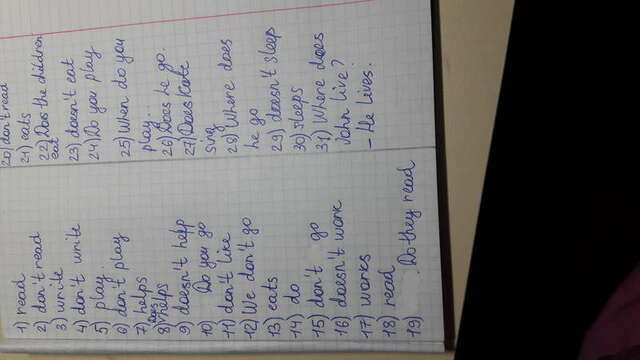 1) read
2) don't read
3) write
4) don't write
5) play.
6) don't play
7) helps
8) Does helps
9) doesn't help
10) Do you go
11) don't like
12) We don't go
13) eats
14) do
15) don't go
16) doesn't work
17) works
18) read
19) Do they read
20) don't read
21) eats
22) Does the children
eat
23) doesn't eat
24) Do you play
25) When do you
play.
26) Does he go.
27) Does Kate
sing
28) Where does
he go
29) doesn't sleep
30) sleeps
31) Where does
John live?
- He lives.